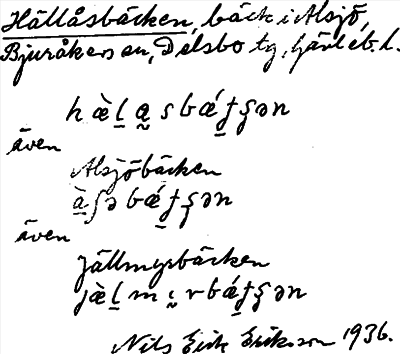 Hällåsbäcken, bäck i Alsjö,
Bjuråkers sn, Delsbo tg, Gävleb. l.
hæ̀l̲a̰sbǽt̲ʂən
även
Alsjöbäcken
à̲ʃəbǽt̲ʂən
även
Jällmyrbäcken
jæ̀l̲mḭrbǽt̲ʂən
Nils Erik Eriksson 1936.